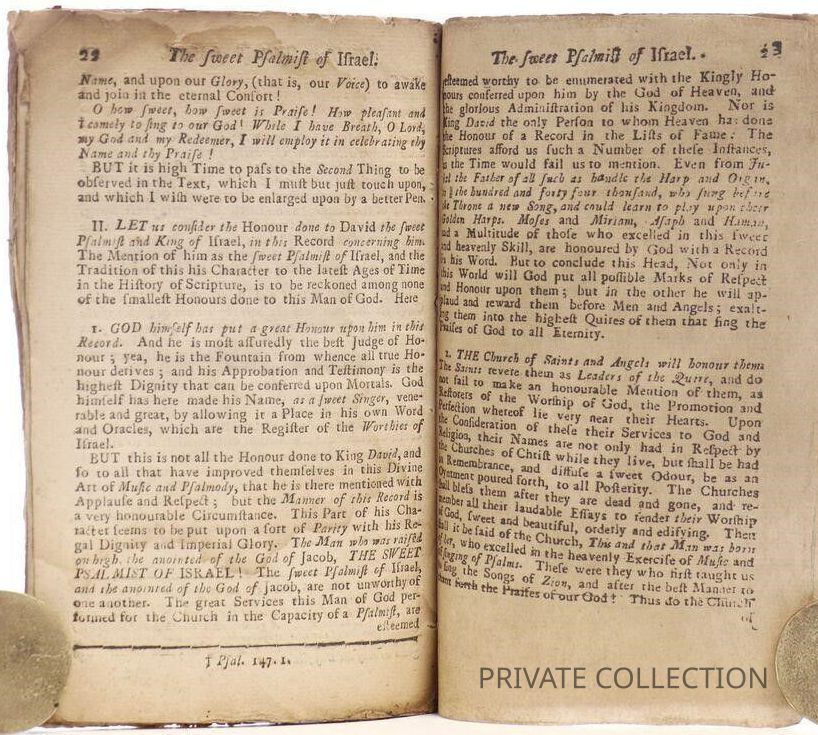 22
The ſweet Pſalmiſt of Iſrael:
Name, and upon our Glory, (that is, our Voice) to awake
and join in the eternal Conſort!
O how ſweet, how ſweet is Praiſe! How pleaſant and
† comely to ſing to our God! While I have Breath, O Lord,
my God and my Redeemer, I will employ it in celebrating thy
Name and thy Praiſe!
BUT it is high Time to paſs to the Second Thing to be
obſerved in the Text, which I muſt but juſt touch upon,
and which I wiſh were to be enlarged upon by a better Pen.
II. LET us conſider the Honour done to David the ſweet
Pſalmiſt and King of Iſrael, in this Record concerning him.
The Mention of him as the ſweet Pſalmiſt of Iſrael, and the
Tradition of this his Character to the lateſt Ages of Time
in the Hiſtory of Scripture, is to be reckoned among none
of the ſmalleſt Honours done to this Man of God. Here
1. GOD himſelf has put a great Honour upon him in this
Record. And he is moſt aſſuredly the beſt Judge of Ho-
nour; yea, he is the Fountain from whence all true Ho-
nour derives; and his Approbation and Teſtimony is the
higheſt Dignity that can be conferred upon Mortals. God
himſelf has here made his Name, as a ſweet Singer, vene-
rable and great, by allowing it a Place in his own Word
and Oracles, which are the Regiſter of the Worthies of
Iſrael.
BUT this is not all the Honour done to King David, and
ſo to all that have improved themſelves in this Divine
Art of Muſic and Pſalmody, that he is there mentioned with
Applauſe and Reſpect; but the Manner of this Record is
a very honourable Circumſtance. This Part of his Cha-
racter ſeems to be put upon a ſort of Parity with his Re-
gal Dignity and Imperial Glory. The Man who was raiſed
on high, the anointed of the God of Jacob, THE SWEET
PSALMIST OF ISRAEL! The ſweet Pſalmiſt of Iſrael,
and the anointed of the God of Jacob, are not unworthy of
one another. The great Services this Man of God per-
formed for the Church in the Capacity of a Pſalmiſt, are
eſteemed
† Pſal. 147. 1.
The ſweet Pſalmiſt of Iſrael.
23
eſteemed worthy to be enumerated with the Kingly Ho-
nours conferred upon him by the God of Heaven, and
the glorious Adminiſtration of his Kingdom. Nor is
King David the only Perſon to whom Heaven has done
the Honour of a Record in the Liſts of Fame: The
Scriptures afford us ſuch a Number of theſe Inſtances,
as the Time would fail us to mention. Even from Ju-
bal the Father of all ſuch as handle the Harp and Organ,
to the hundred and forty four thouſand, who ſung before
the Throne a new Song, and could learn to play upon their
Golden Harps. Moſes and Miriam, Aſaph and Haman,
and a Multitude of thoſe who excelled in this ſweet
and heavenly Skill, are honoured by God with a Record
in his Word. But to conclude this Head, Not only in
this World will God put all poſſible Marks of Reſpect
and Honour upon them; but in the other he will ap-
plaud and reward them before Men and Angels; exalt-
ing them into the higheſt Quires of them that ſing the
Praiſes of God to all Eternity.
2. THE Church of Saints and Angels will honour them
The Saints revere them as Leaders of the Quire, and do
not fail to make an honourable Mention of them, as
Reſtorers of the Worſhip of God, the Promotion and
Perfection whereof lie very near their Hearts. Upon
the Conſideration of theſe their Services to God and
Religion, their Names are not only had in Reſpect by
the Churches of Chriſt while they live, but ſhall be had
in Remembrance, and diffuſe a ſweet Odour, be as an
Ointment poured forth, to all Poſterity. The Churches
ſhall bleſs them after they are dead and gone, and re-
member all their laudable Eſſays to render their Worſhip
of God, ſweet and beautiful, orderly and edifying. Then
ſhall it be ſaid of the Church, This and that Man was born
of her, who excelled in the heavenly Exerciſe of Muſic and
ſinging of Pſalms. Theſe were they who firſt taught us
to ſing the Songs of Zion, and after the beſt Manner to
ſhew forth the Praiſes of our God! Thus do the Church
of
PRIVATE COLLECTION